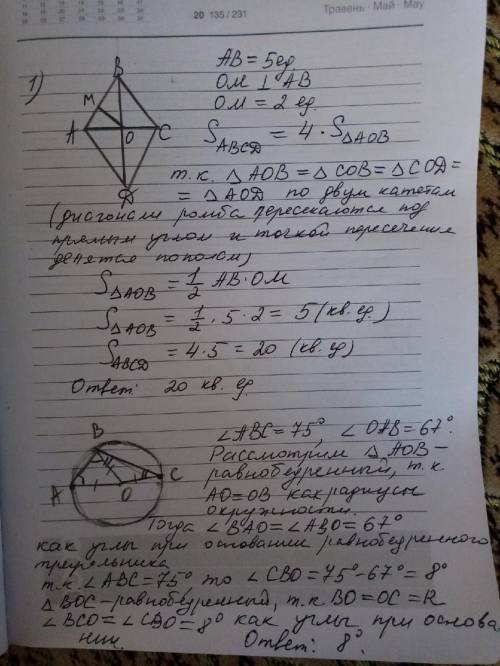 20 135 / 231
Травень · Май · May
1)
AB = 5ед
OM ⊥ AB
OM = 2 ед.
S_ABCD = 4 · S_ΔAOB
B
M
A
O
C
D
т.к. ΔAOB = ΔCOB = ΔCOD =
= ΔAOD по двум катетам
(диагонали ромба пересекаются под
прямым углом и точкой пересечения
делятся пополам)
S_ΔAOB = 1/2 AB · OM
S_ΔAOB = 1/2 · 5 · 2 = 5 (кв. ед.)
S_ABCD = 4 · 5 = 20 (кв. ед)
Ответ: 20 кв. ед.
B
A
O
C
∠ABC = 75°, ∠OAB = 67°.
Рассмотрим ΔAOB –
равнобедренный, т.к.
AO = OB как радиусы
окружности.
Тогда ∠BAO = ∠ABO = 67°
как углы при основании равнобедренного
треугольника
т.к ∠ABC = 75° то ∠CBO = 75° - 67° = 8°
ΔBOC – равнобедренный, т.к BO = OC = R
∠BCO = ∠CBO = 8° как углы при основа
нии. Ответ: 8°.